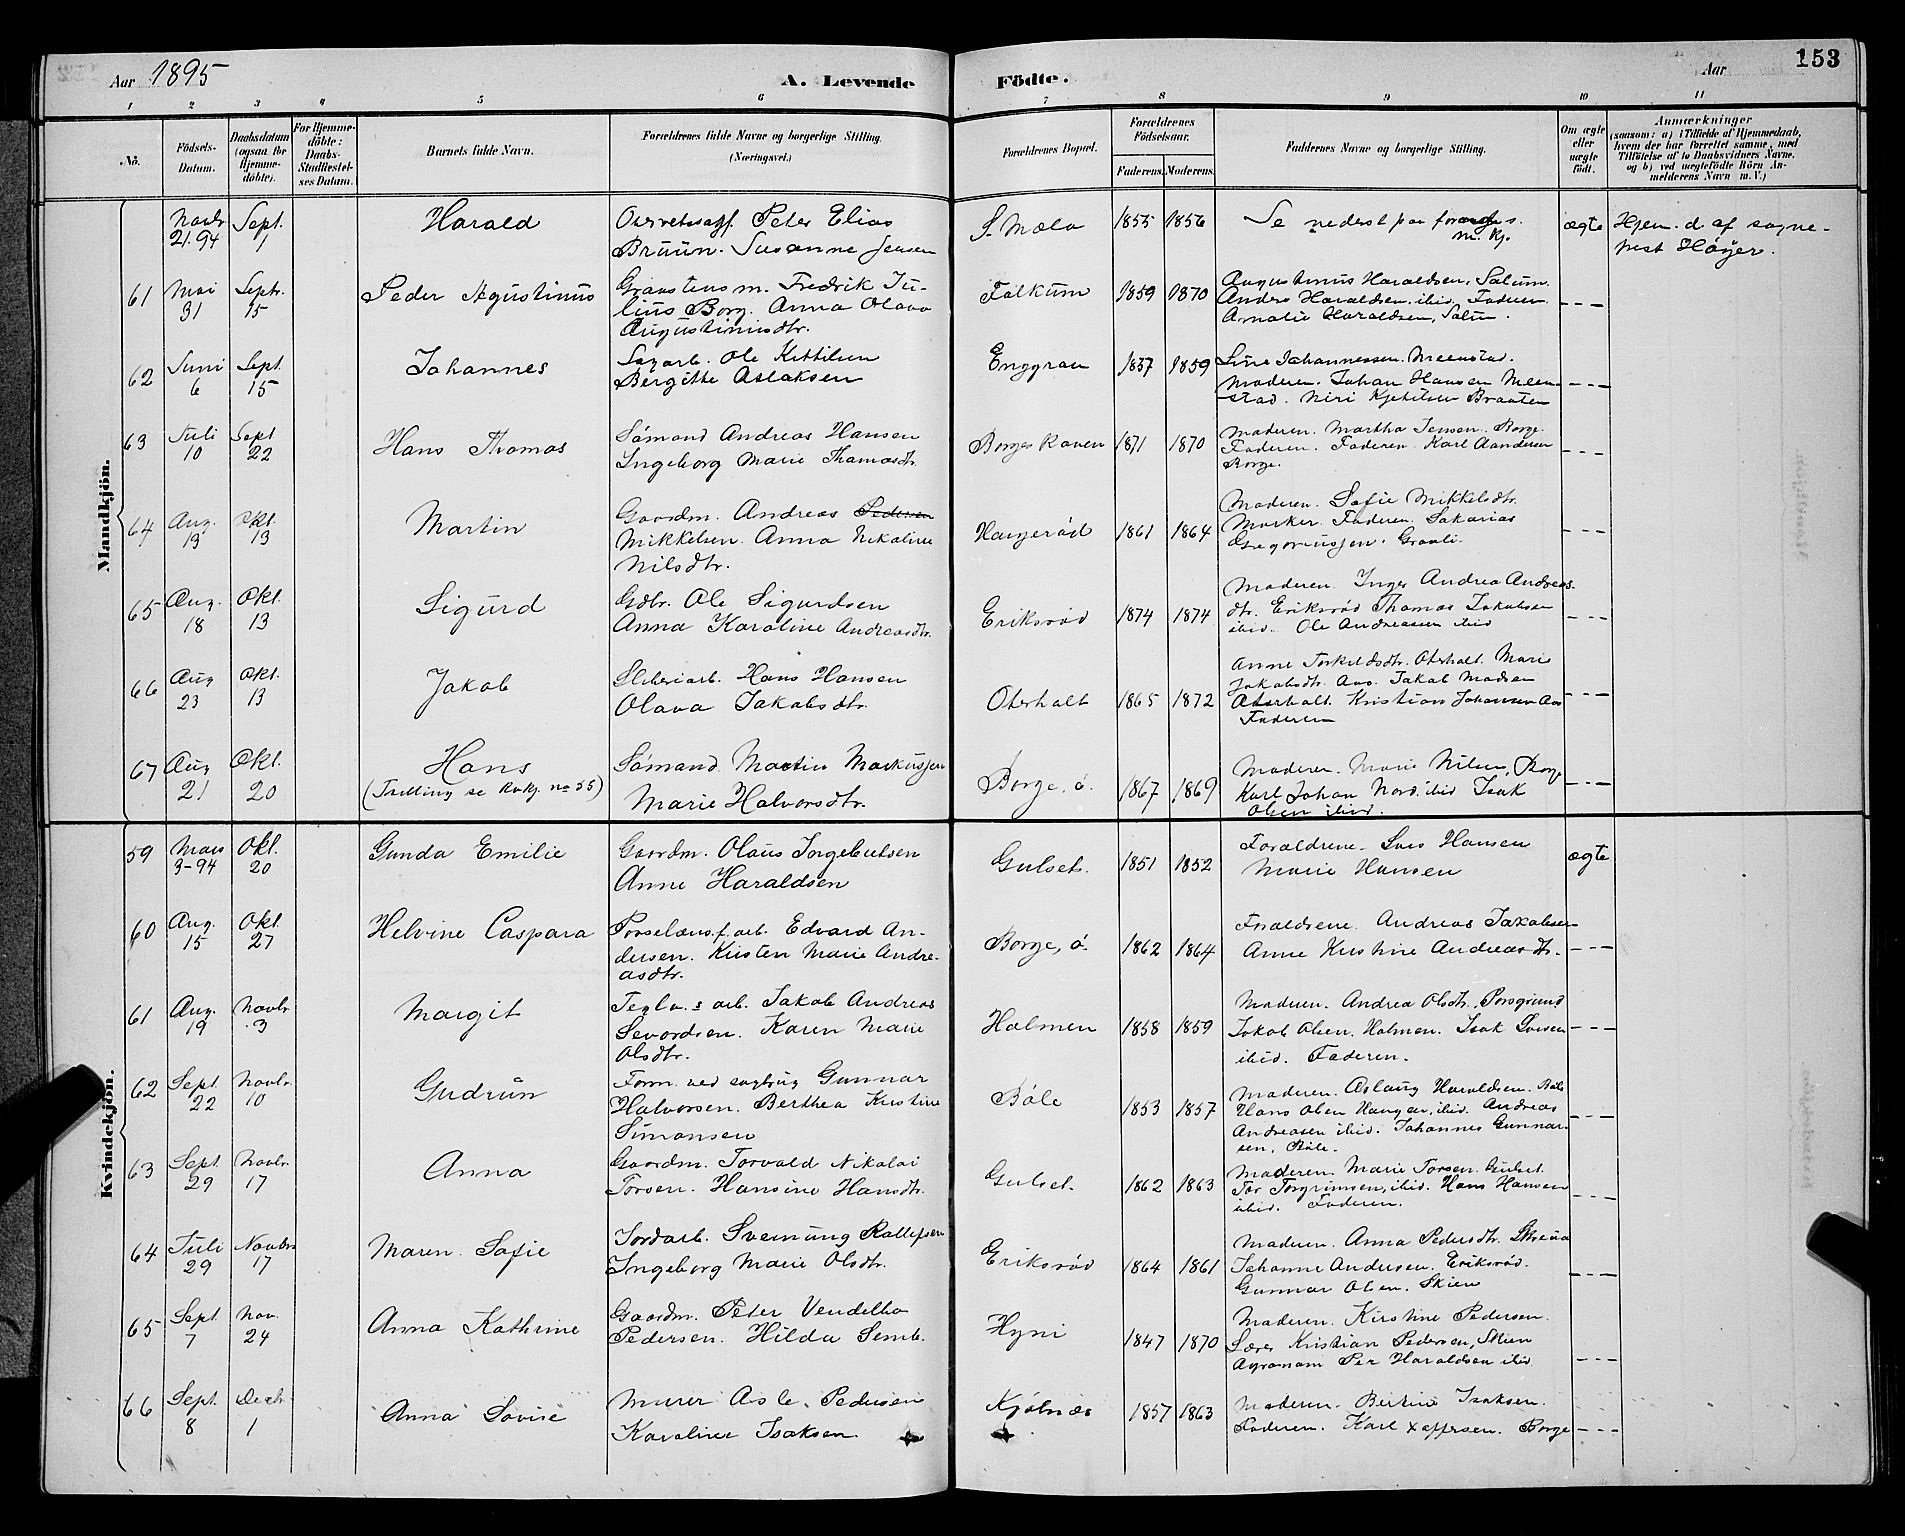 153
Aar 1895 A. Levende Födte. Aar
1 2 3 4 5 6 7 8 9 10 11
No. Födsels-Datum. Daabsdatum (ogsaa for Hjemme-döbte). For Hjemme-döbte: Daabs-Stadfæstel-ses Datum. Barnets fulde Navn. Forældrenes fulde Navne og borgerlige Stilling. (Næringsvei.) Forældrenes Bopæl. Forældrenes Födselsaar. Faderens. Moderens. Faddernes Navne og borgerlige Stilling. Om ægte eller uægte födt. Anmærkninger
(saasom: a) i Tilfælde af Hjemmedaab,
hvem der har forrettet samme, med
Tilföielse af to Daabsvidners Navne,
og b) ved uægtefödte Börn An-
melderens Navn m. V.)
Mandkjön.
Novbr 21. 94 Sept. 1 Harald Peter Elias
Bruun. Susanne Jensen S. Mæla 1855 1856 Se nederst paa
m. kj. ægte Hjem. d. af sogne-
prest Höyer.
61 Mai 31 Septr. 15 Peder Agustinus Fredrik Ju-
lius Borg. Anna Olava
Augustinusdtr. Falkum 1859 1870 Augustinus Haraldsen, Solum.
Anders Haraldsen, ibid. Faderen
Amalie Haraldsen, Solum. – – –
62 Juni 6 Sept. 15 Johannes Sagarb. Ole Kittilsen
Bergitte Aslaksen Enggrav 1857 1859 Line Johannessen. Meenstad.
Moderen. Johan Hansen Meen-
stad. Kjetilsen Braaten – – –
63 Juli 10 Sept 22 Hans Thomas Sömand Andreas Hansen
Ingeborg Marie Thomasdtr. Borgeskoven 1871 1870 Moderen. Martha Jensen. Borge.
Faderen. Karl
Borge. – – –
64 Aug. 19 Okt. 13 Martin Gaardm. Andreas Pedersen
Mikkelsen. Anna Nikoline
Nilsdtr. Haugeröd 1861 1864 Moderen. Sofie Mikkelsdtr.
Faderen. Sakarias
Gregoriussen. Graali. – – –
65 Aug. 18 Okt. 13 Sigurd Gdbr. Ole Sigurdsen
Anna Karoline Andreasdtr. Eriksröd 1874 1874 Moderen. Inger Andrea Andreas-
dtr. Eriksröd Thomas Jakobsen
ibid. Ole Andreassen ibid – – –
66 Aug 23 Okt. 13 Jakob Sliberiarb. Hans Hansen
Olava Jakobsdtr. Oterholt 1865 1872 Anne Torkeldsdtr. Oterholt. Marie
Jakobsdtr. Aas. Jakob Madsen
Oterholt. Kristian Johansen Aas
Faderen – – –
67 Aug 21 Okt. 20 Hans
(Tvilling se Kvkj. no 55) Sömand Martin Markussen
Marie Halvorsdtr. Borge, ö. 1867 1869 Moderen. Marie Nilsen, Borge
Karl Johan Nord, ibid Isak
Olsen ibid. – – –
Kvindekjön.
59 Mars 3-94 Okt. 20 Gunda Emilie Gaardm. Olaus Ingebretsen
Anne Haraldsen Gulset. 1851 1852 Forældrene. Lars Hansen
Marie Hansen ægte
60 Aug. 15 Okt. 27 Helvine Caspara Porselænsf. arb. Edvard An-
dersen. Kirsten Marie Andre-
asdtr. Borge, ö. 1862 1864 Forældrene. Andreas Jakobsen
Anne Kirstine Andreasdtr. – – –
61 Aug. 19 Novbr. 3 Margit Teglv.s arb. Jakob Andreas
Sevordsen. Karen Marie
Olsdtr. Holmen 1858 1859 Moderen. Andrea Olsdtr. Porsgrund
Jakob Olsen. Holmen. Isak Larsen
ibid. Faderen. – – –
62 Sept. 22 Novbr. 10 Gudrun Form. ved sagbrug Gunnar
Halvorsen. Berthea Kirstine
Simonsen Böle 1853 1857 Moderen. Aslaug Haraldsen. Böle
Hans Olsen Haugen, ibid. Andreas
Andreasen ibid. Johannes Gunnar-
sen, Böle. – – –
63 Sept. 29 Novbr. 17 Anna Gaardm. Torvald Nikolai
Torsen. Hansine Hansdtr. Gulset. 1862 1863 Moderen. Marie Torsen. Gulset.
Tor Torgrimsen, ibid. Hans Hansen
ibid. Faderen. – – –
64 Juli 29 Novbr 17 Maren Sofie Jordarb. Sveinung Rollefsen
Ingeborg Marie Olsdtr. Eriksröd 1864 1861 Moderen. Anna Pedersdtr.
Johanne Andersen. Eriksröd.
Gunnar Olsen. Skien – – –
65 Sept 7 Nov. 24 Anna Kathrine Gaardm. Peter Vendelbo
Pedersen. Hilda Semb. Hyni 1847 1870 Moderen. Kirstine Pedersen.
Lærer Kristian Pedersen, Skien
Agronom Per Haraldsen ibid – – –
66 Sept. 8 Decbr. 1 Anna Lovise Murer Asle Pedersen
Karoline Isaksen. Kjölnes 1857 1863 Moderen. Bertine Isaksen.
Faderen. Karl Borge – – –